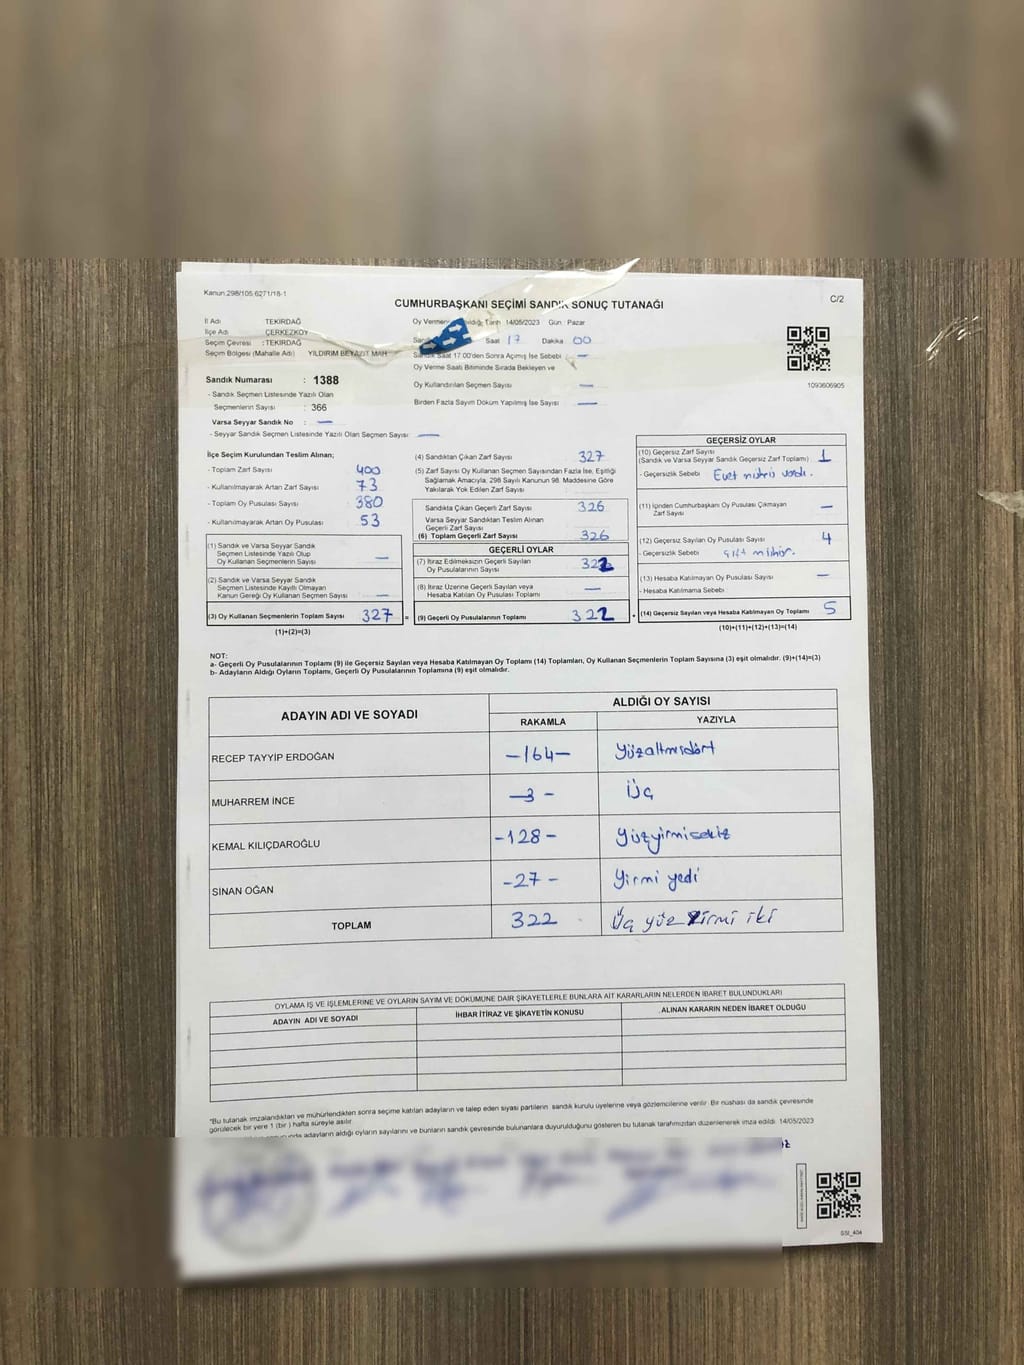 Kanun:298/105 6271/18-1
C/2
CUMHURBAŞKANI SEÇİMİ SANDIK SONUÇ TUTANAĞI
İl Adı TEKİRDAĞ
İlçe Adı ÇERKEZKÖY
Seçim Çevresi : TEKİRDAĞ
Seçim Bölgesi (Mahalle Adı) YILDIRIM BEYAZIT MAH
Sandık Numarası : 1388
- Sandık Seçmen Listesinde Yazılı Olan
Seçmenlerin Sayısı : 366
Varsa Seyyar Sandık No : —
- Seyyar Sandık Seçmen Listesinde Yazılı Olan Seçmen Sayısı —
Oy Vermenin Tarih 14/05/2023 Gün Pazar
Saat 17 Dakika 00
Sandık Saat 17.00'den Sonra Açılmış İse Sebebi —
Oy Verme Saati Bitiminde Sırada Bekleyen ve
Oy Kullandırılan Seçmen Sayısı —
Birden Fazla Sayım Döküm Yapılmış İse Sayısı —
1093606905
İlçe Seçim Kurulundan Teslim Alınan;
- Toplam Zarf Sayısı 400
- Kullanılmayarak Artan Zarf Sayısı 73
- Toplam Oy Pusulası Sayısı 380
- Kullanılmayarak Artan Oy Pusulası 53
(1) Sandık ve Varsa Seyyar Sandık
Seçmen Listesinde Yazılı Olup
Oy Kullanan Seçmenlerin Sayısı —
(2) Sandık ve Varsa Seyyar Sandık
Seçmen Listelerinde Kayıtlı Olmayan
Kanun Gereği Oy Kullanan Seçmen Sayısı —
(3) Oy Kullanan Seçmenlerin Toplam Sayısı 327 =
(1)+(2)=(3)
(4) Sandıktan Çıkan Zarf Sayısı 327
(5) Zarf Sayısı Oy Kullanan Seçmen Sayısından Fazla İse, Eşitliği
Sağlamak Amacıyla, 298 Sayılı Kanunun 98. Maddesine Göre
Yakılarak Yok Edilen Zarf Sayısı
Sandıkta Çıkan Geçerli Zarf Sayısı 326
Varsa Seyyar Sandıktan Teslim Alınan
Geçerli Zarf Sayısı
(6) Toplam Geçerli Zarf Sayısı 326
GEÇERLİ OYLAR
(7) İtiraz Edilmeksizin Geçerli Sayılan
Oy Pusulalarının Sayısı 322
(8) İtiraz Üzerine Geçerli Sayılan veya
Hesaba Katılan Oy Pusulası Toplamı —
(9) Geçerli Oy Pusulalarının Toplamı 322 +
GEÇERSİZ OYLAR
(10) Geçersiz Zarf Sayısı
(Sandık ve Varsa Seyyar Sandık Geçersiz Zarf Toplamı) 1
- Geçersizlik Sebebi Evet mührü vardı.
(11) İçinden Cumhurbaşkanı Oy Pusulası Çıkmayan
Zarf Sayısı —
(12) Geçersiz Sayılan Oy Pusulası Sayısı 4
- Geçersizlik Sebebi çift mühür.
(13) Hesaba Katılmayan Oy Pusulası Sayısı —
- Hesaba Katılmama Sebebi
(14) Geçersiz Sayılan veya Hesaba Katılmayan Oy Toplamı 5
(10)+(11)+(12)+(13)=(14)
NOT:
a- Geçerli Oy Pusulalarının Toplamı (9) ile Geçersiz Sayılan veya Hesaba Katılmayan Oy Toplamı (14) Toplamları, Oy Kullanan Seçmenlerin Toplam Sayısına (3) eşit olmalıdır. (9)+(14)=(3)
b- Adayların Aldığı Oyların Toplamı, Geçerli Oy Pusulalarının Toplamına (9) eşit olmalıdır.
ADAYIN ADI VE SOYADI ALDIĞI OY SAYISI
RAKAMLA YAZIYLA
RECEP TAYYİP ERDOĞAN -164- Yüzaltmışdört
MUHARREM İNCE -3- Üç
KEMAL KILIÇDAROĞLU -128- Yüzyirmisekiz
SİNAN OĞAN -27- Yirmi yedi
TOPLAM 322 Üç yüz Yirmi iki
OYLAMA İŞ VE İŞLEMLERİNE VE OYLARIN SAYIM VE DÖKÜMÜNE DAİR ŞİKAYETLERLE BUNLARA AİT KARARLARIN NELERDEN İBARET BULUNDUKLARI
ADAYIN ADI VE SOYADI İHBAR İTİRAZ VE ŞİKAYETİN KONUSU ALINAN KARARIN NEDEN İBARET OLDUĞU
"Bu tutanak imzalandıktan ve mühürlendikten sonra seçime katılan adayların ve talep eden siyasi partilerin sandık kurulu üyelerine veya gözlemcilerine verilir. Bir nüshası da sandık çevresinde
görülecek bir yere 1 (bir) hafta süreyle asılır.
adayların aldığı oyların sayılarını ve bunların sandık çevresinde bulunanlara duyurulduğunu gösteren bu tutanak tarafımızdan düzenlenerek imza edildi. 14/05/2023
GSI_404